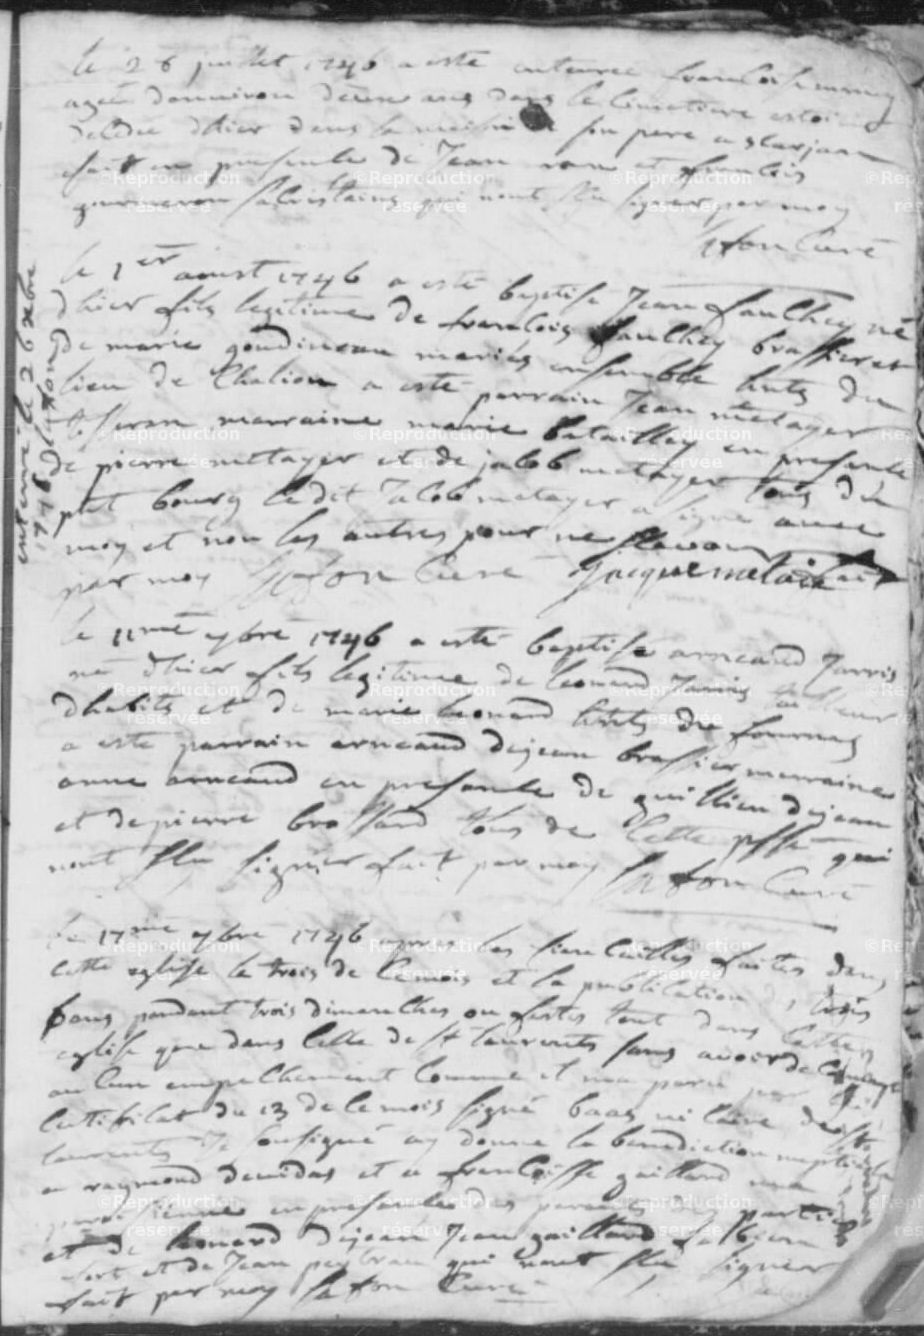 le 26 juillet 1746 a esté enterrée francoise
agée denviron deux ans dans le cimetiere estoit
décédée dhier dans la maison de son pere
fait en presence de Jean et francois
sacristains qui n'ont sceu signer par moy
curé
le 1er aoust 1746 a esté baptisé Jean faulthey né
dhier fils legitime de francois faulthey brassier et
de marie goudineau mariés ensemble hnts du
lieu de Chalion a esté parrain Jean métayer
tisseran marraine marie bataille en presence
de pierre metayer et de jacob metayer tous du
ptit bourg ledit Jacob metayer a signé avec
moy et non les autres pour ne scavoir fait
par moy curé Jacque metaié
enterré le 26 xbre
1746
le 11me 7bre 1746 a esté baptisé arneaud Jarris
né dhier fils legitime de leonard Jarris tailleur
dhabits et de marie leonard hnts de fournas
a esté parrain arneaud dejean brassier marraine
anne arneaud en presence de guilhen dejean
et de pierre brossard tous de cette psse qui
nont sceu signer fait par moy curé
le 17me 7bre 1746 apres les fiancailles faites dans
cette eglise le trois de ce mois et la publication des trois
bans pendant trois dimanches ou festes tant dans cette
eglise que dans celle de st laurents sans avoir decouvert
aucun empeschement comme il ma paru par le
certificat du 13 de ce mois signé baas vicaire de st
laurents Je soussigné ay donné la benediction nuptiale
a raymond denidas et a francoise gaillard ma
paroissienne en presence des parants des parties
et de leonard dejean Jean gaillard
fort et de Jean peybrau qui nont sceu signer
fait par moy curé